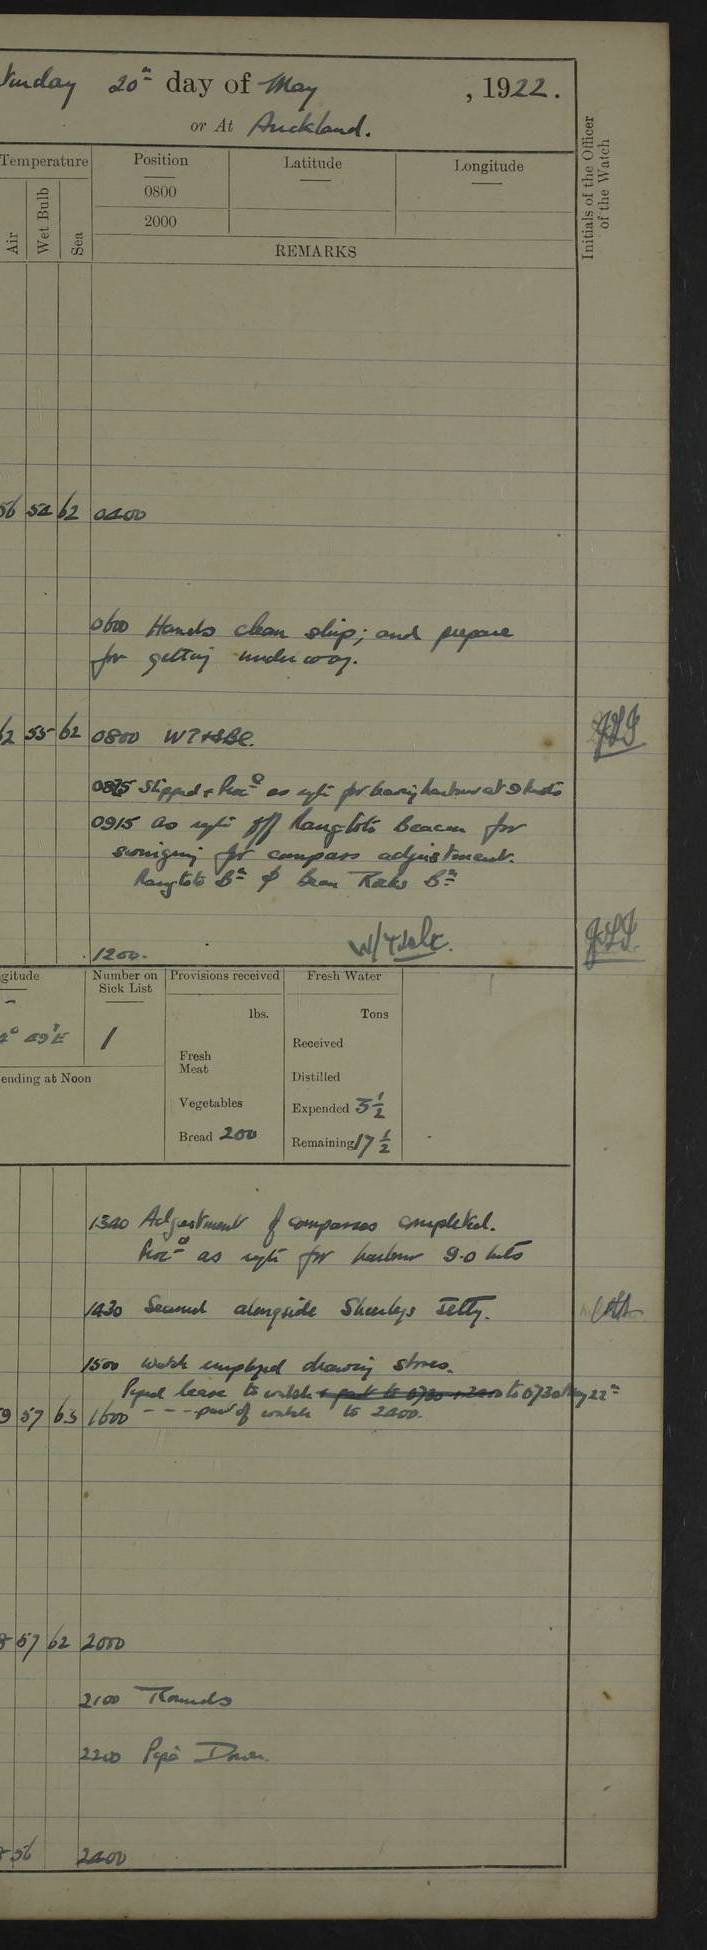 20th day of May , 1922.
or At Auckland.
Temperature
Position Latitude Longitude
Air Wet Bulb Sea
0800
2000
REMARKS
Initials of the Officer of the Watch
56 54 62 0400
0600 Hands clean ship; and prepare
for getting under way.
62 55 62 0800
Slipped & Proc.d as req. for leaving harbour at 9 knots
0915 as req. off Rangitoto beacon for
swinging for compass adjustment.
Rangitoto Bn ϕ Bean Rocks Bn
1200.
gitude
Number on Sick List
Provisions received
Fresh Water
–
lbs.
Tons
49'E 1
Received
Fresh Meat
ending at Noon
Distilled
Vegetables
Expended 3½
Bread 200
Remaining 17½
1340 Adjustment of compasses completed.
Proc.d as req. for harbour 9.0 knts
1430 Secured alongside Jetty.
1500 Watch employed drawing stores.
Piped leave to watch to 0730 May 22nd
9 57 63 1600 - - - part of watch to 2400.
57 62 2000
2100 Rounds
2200 Pipe Down.
56 2400